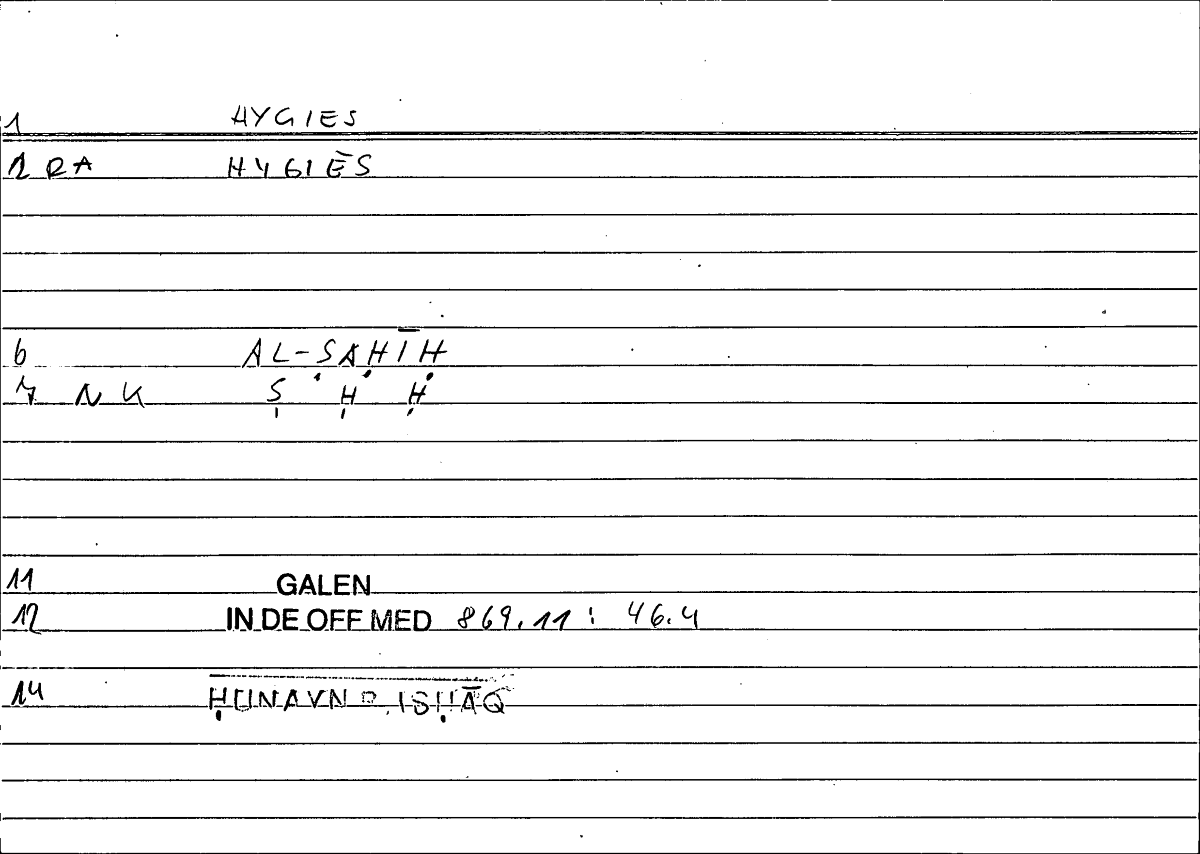 1 HYGIES
1 RA HYGIĒS
6 AL-ṢAḤĪḤ
7 NK Ṣ Ḥ Ḥ
11 GALEN
12 IN DE OFF MED 869.11 : 46.4
14 ḤUNAYN B. ISḤĀQ